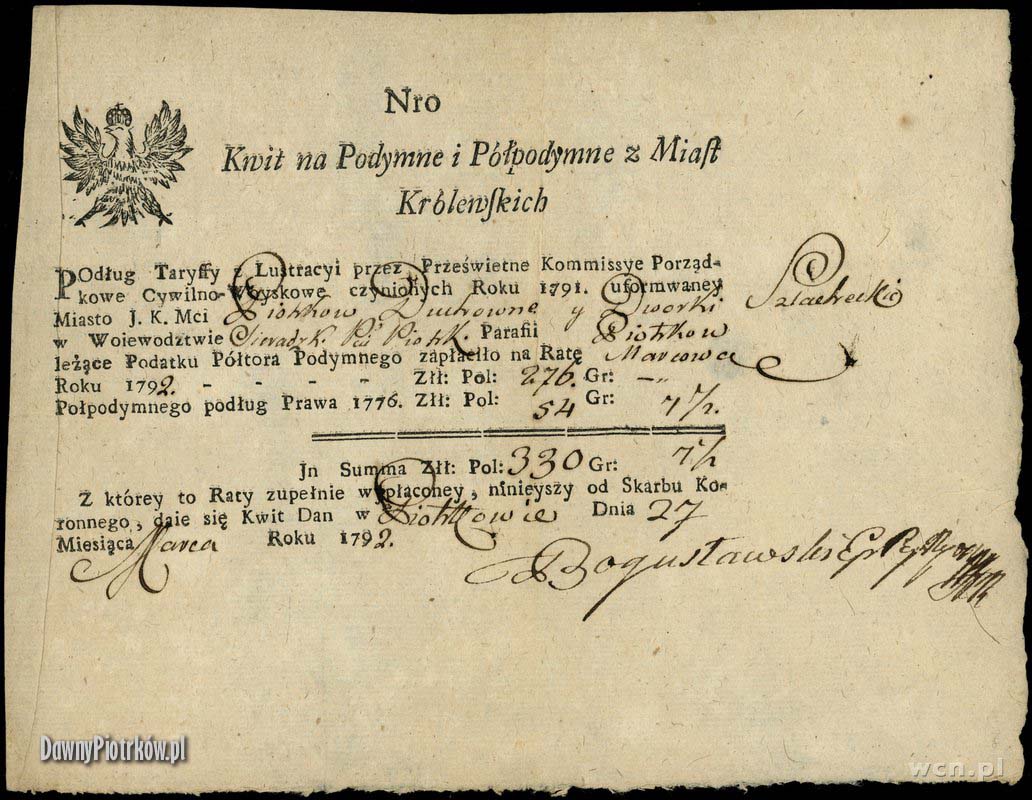 Nro
Kwit na Podymne i Półpodymne z Miaſt
Królewſkich
POdług Taryffy z Lustracyi przez Prześwietne Kommissye Porząd-
kowe Cywilno-Woyskowe czynionych Roku 1791. uformwaney
Miasto J. K. Mci Piotrkow Duchowne y Dworki Szlacheckie
w Woiewodztwie Sieradzk. Pu Piotrk. Parafii Piotrkow
leżące Podatku Półtora Podymnego zapłaeiło na Ratę Marcową
Roku 1792. - - - - Złł: Pol: 276. Gr: —„
Połpodymnego podług Prawa 1776. Złł: Pol: 54 Gr: 7 1/2.
Jn Summa Złł: Pol: 330 Gr: 7 1/2
Z którey to Raty zupełnie wypłaconey, ninieyszy od Skarbu Ko-
ronnego, daie się Kwit Dan w Piotrkowie Dnia 27
Miesiąca Marca Roku 1792.
Bogusławski
DawnyPiotrków.pl
wcn.pl